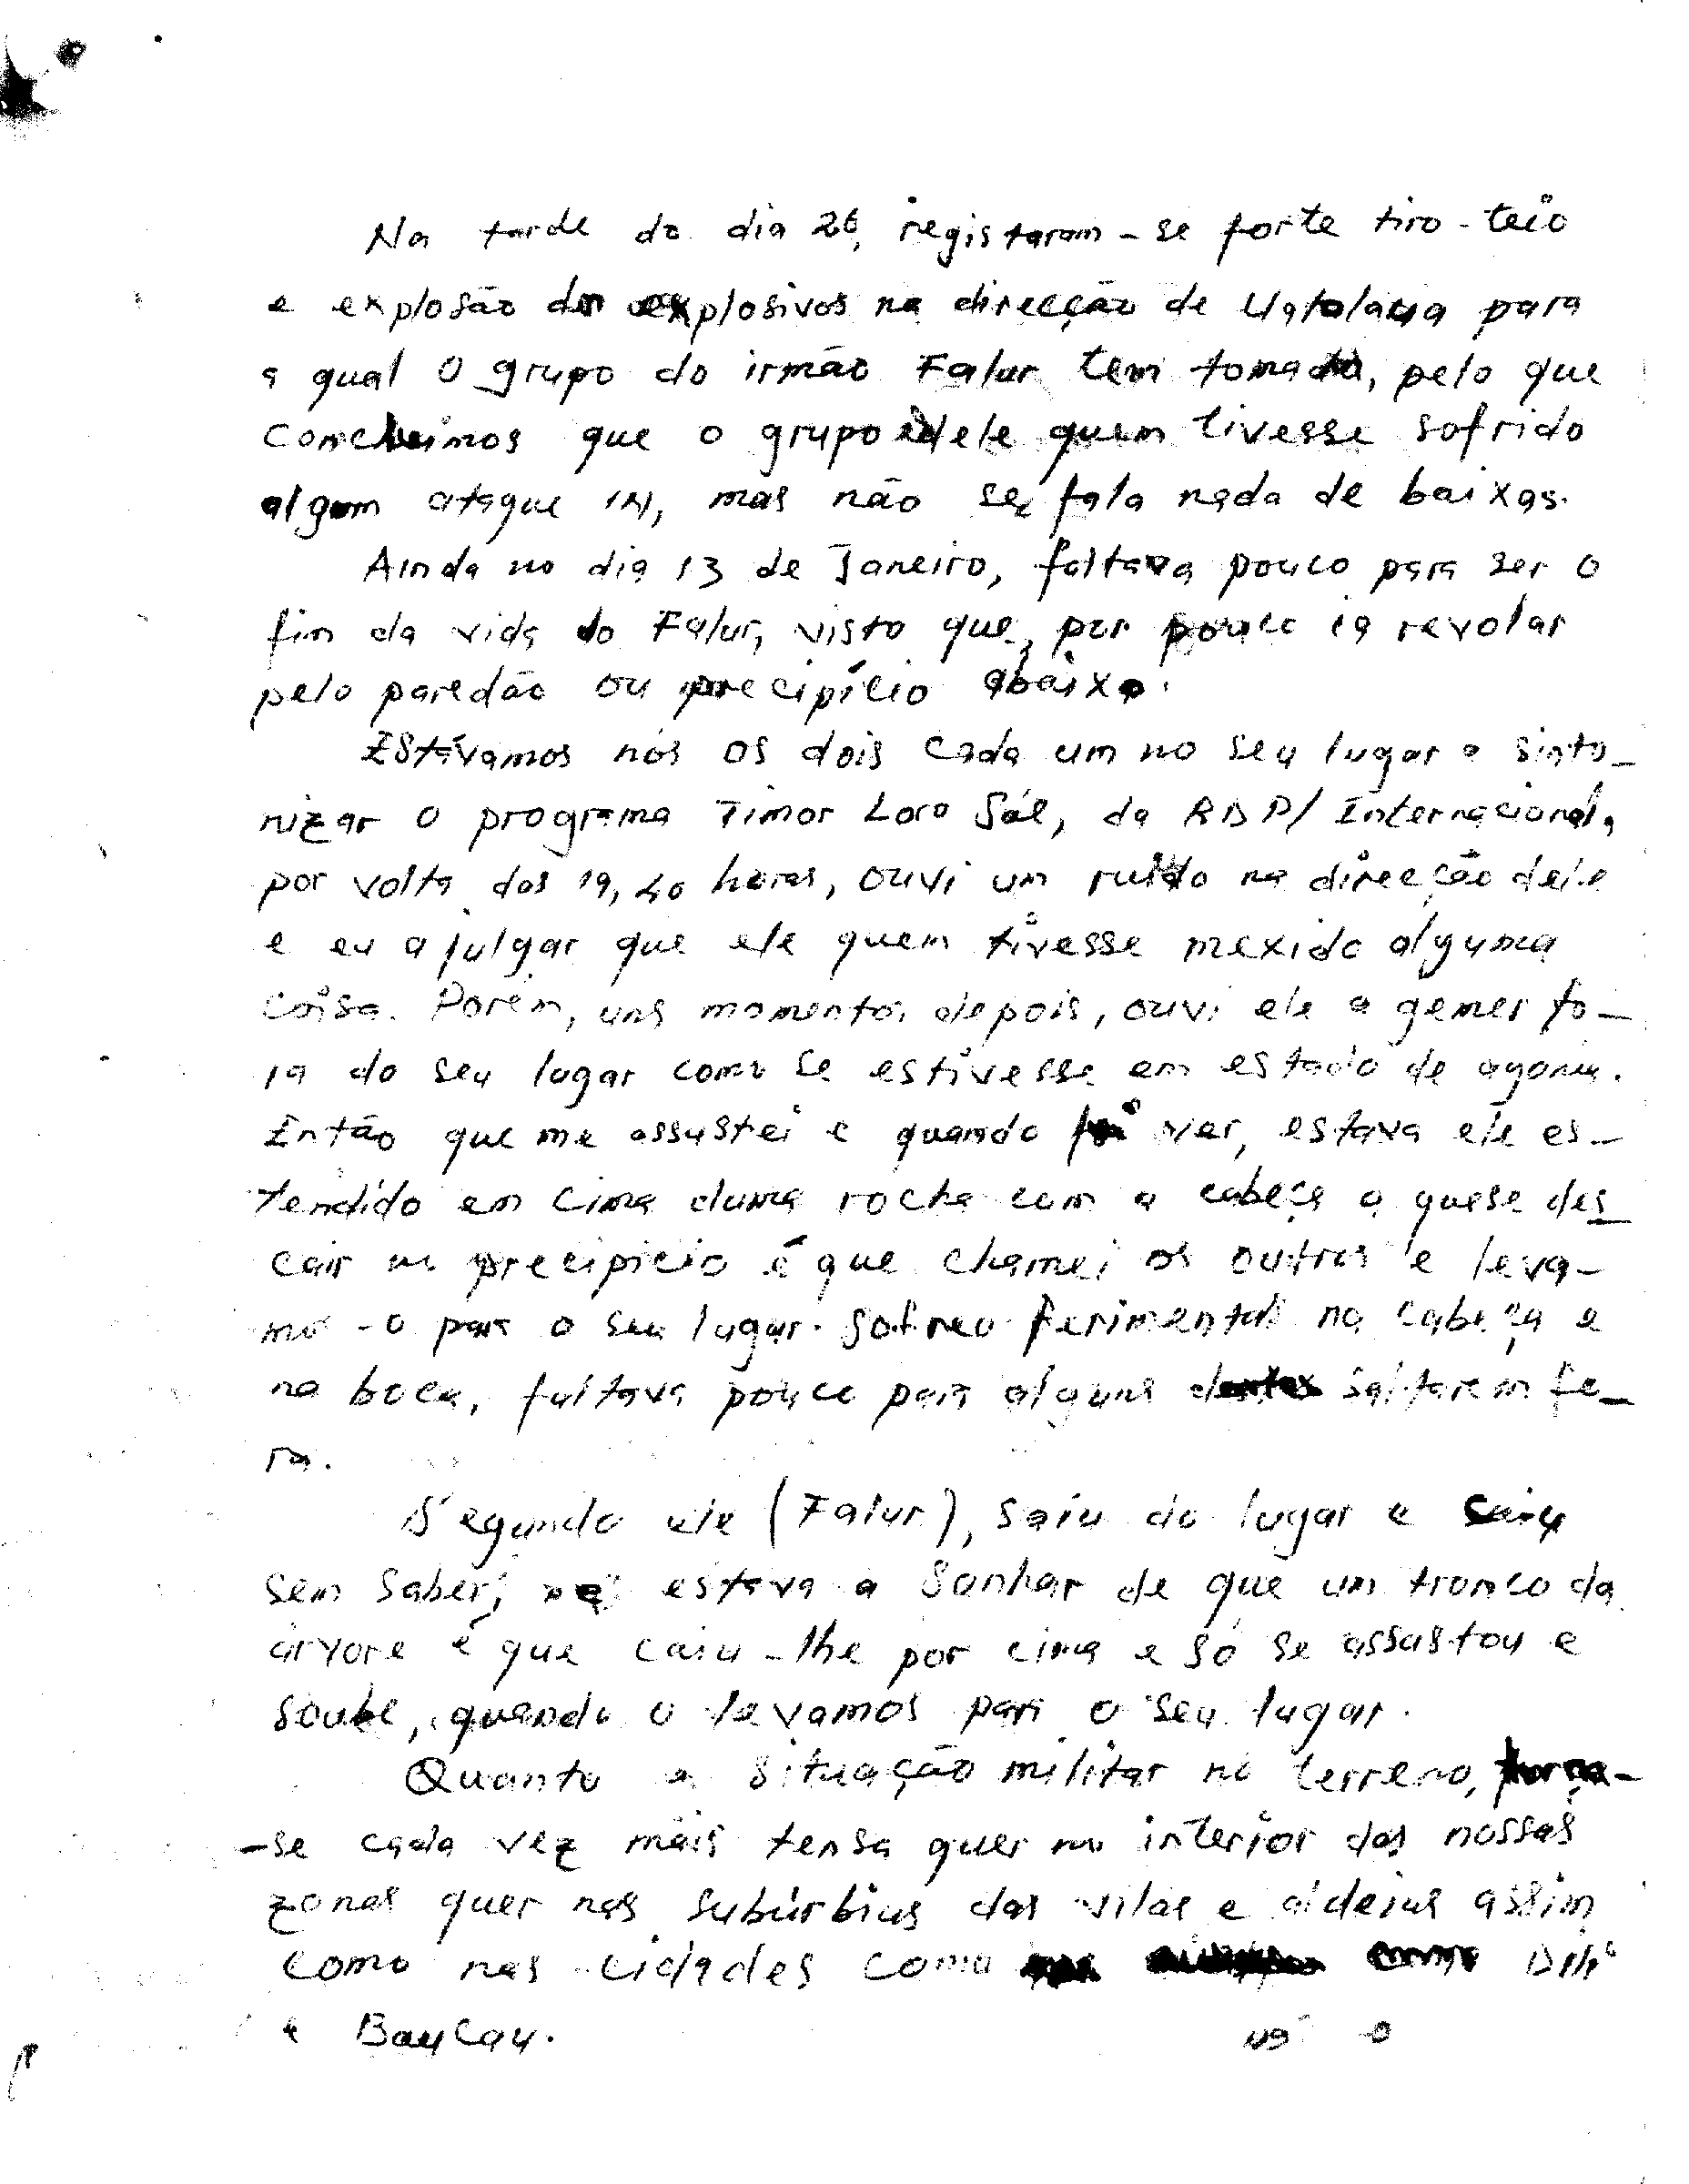 Na tarde do dia 26, registaram-se forte tiro-teio
e explosão de explosivos na direcção de Uatolaua para
a qual o grupo do irmão Falur tem tomado, pelo que
concluimos que o grupo dele quem tivesse sofrido
algum ataque IN, mas não se fala nada de baixas.
Ainda no dia 13 de Janeiro, faltava pouco para ser o
fim da vida do Falur, visto que, por pouco ia revolar
pelo paredão ou precipício abaixo.
Estávamos nós os dois cada um no seu lugar a sinto-
nizar o programa Timor Loro Sáe, da RDP/Internacional,
por volta das 19,40 horas, ouvi um ruído na direcção dele
e eu a julgar que ele quem tivesse mexido alguma
coisa. Porém, uns momentos depois, ouvi ele a gemer fo-
ra do seu lugar como se estivesse em estado de agonia.
Então que me assustei e quando fui ver, estava ele es-
tendido em cima duma rocha com a cabeça a quase des-
cair no precipício é que chamei os outros e leva-
mo-o para o seu lugar. Sofreu ferimentos na cabeça e
na boca, faltava pouco para alguns dentes saltarem fo-
ra.
Segundo ele (Falur), saiu do lugar e caiu
sem saber, estava a sonhar de que um tronco da
árvore é que caiu-lhe por cima e só se assustou e
soube, quando o levamos para o seu lugar.
Quanto a situação militar no terreno, torna-
-se cada vez mais tensa quer no interior das nossas
zonas quer nos subúrbios das vilas e aldeias assim
como nas cidades como Dili
e Baucau.